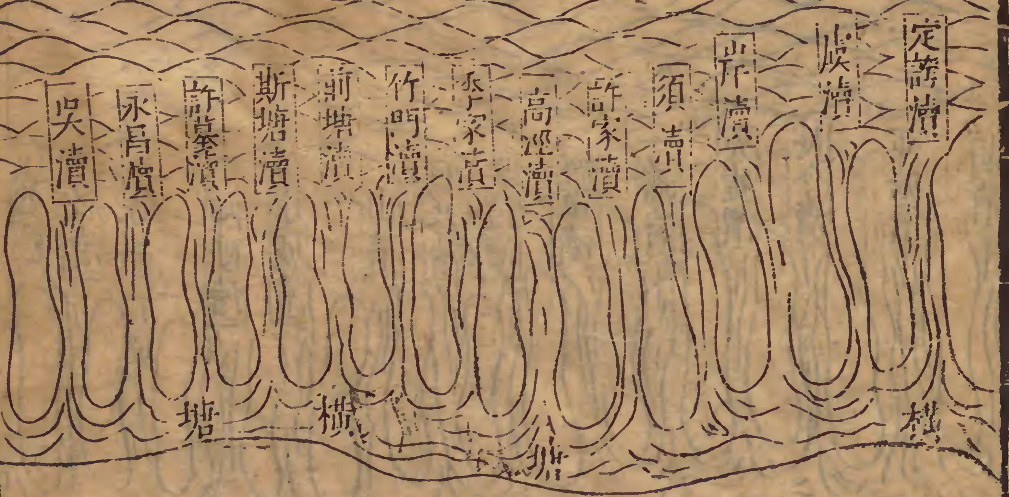 定誇瀆
瀆
瀆
須瀆
許家瀆
高涇瀆
李家瀆
竹門瀆
前塘瀆
斯塘瀆
許墓瀆
永昌瀆
吳瀆
橫
塘
橫
塘